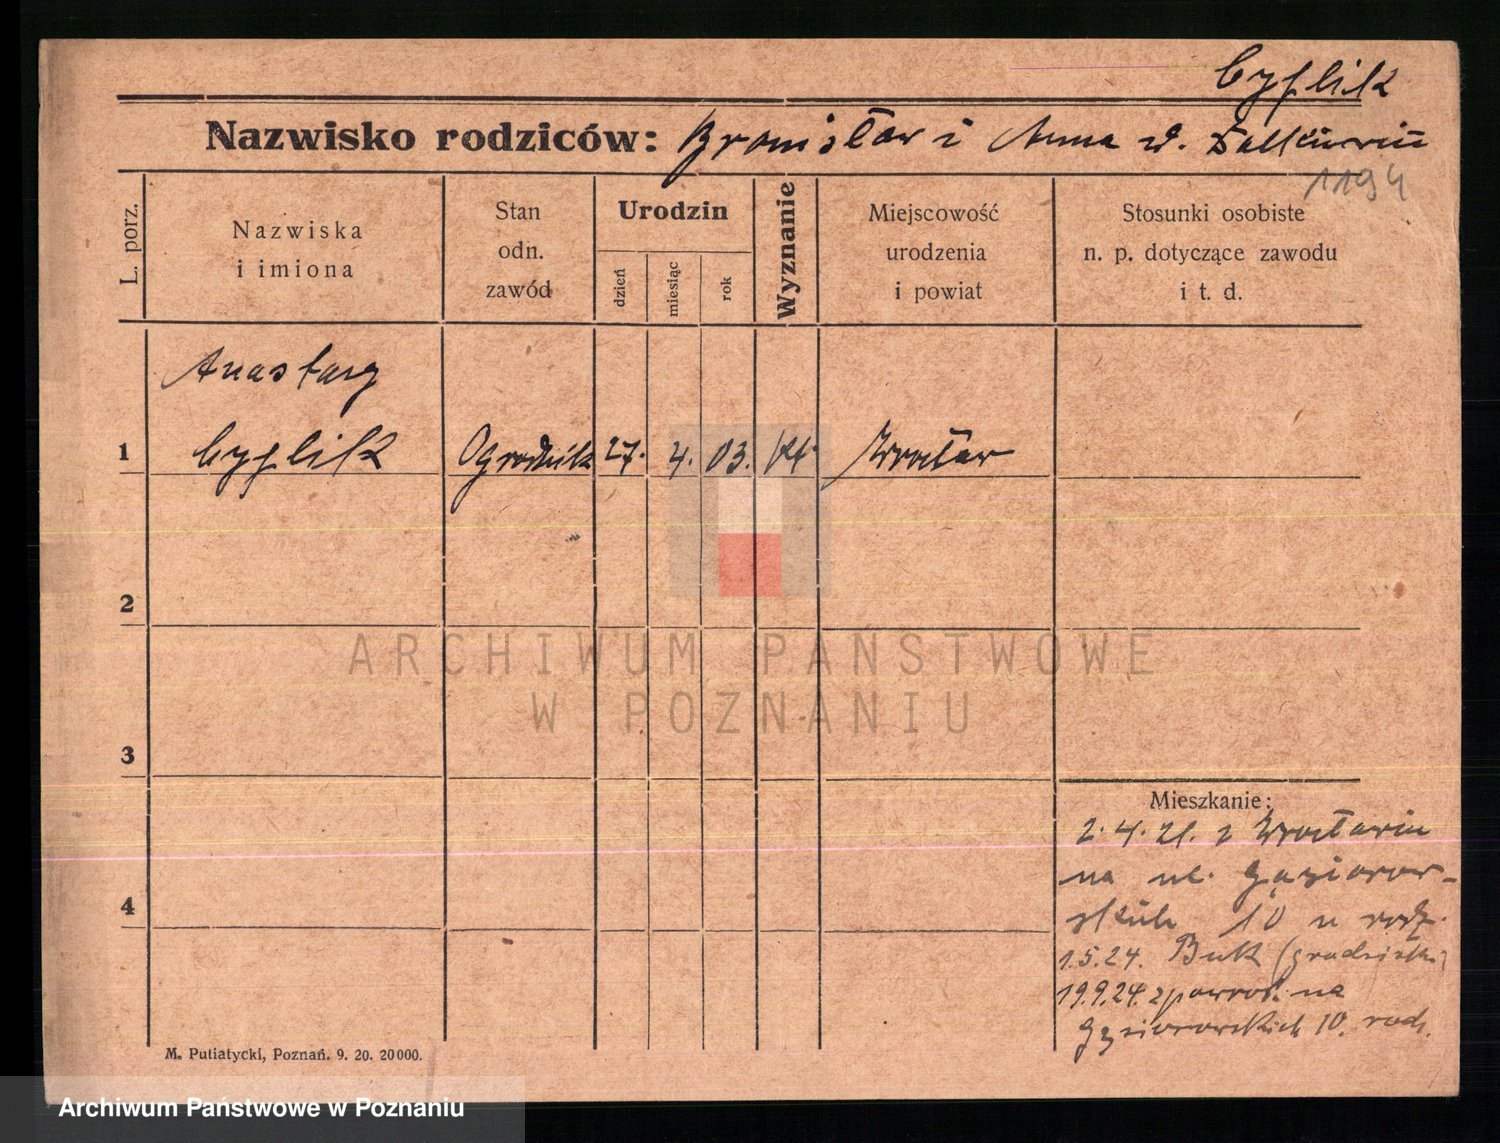 Cyplik
Nazwisko rodziców: Bronisław i Anna d.
1194
L. porz.
Nazwiska
i imiona
Stan
odn.
zawód
Urodzin
dzień
miesiąc
rok
Wyznanie
Miejscowość
urodzenia
i powiat
Stosunki osobiste
n. p. dotyczące zawodu
i t. d.
Anastazy
1 Cyplik Ogrodnik 27. 4. 03. kt. Wrocław
2
3
4
Mieszkanie:
2. 4. 21. z Wrocławia
na ul. Gąsiorow-
skich 10 u rodz.
1.5.24. Buk (grodziski)
19.9.24. z powrot. na
Gąsiorowskich 10. rodz.
M. Putiatycki, Poznań. 9. 20. 20000.
ARCHIWUM PAŃSTWOWE
W POZNANIU
Archiwum Państwowe w Poznaniu